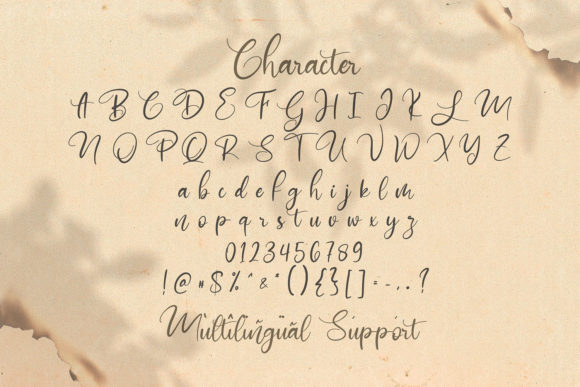 Character
A B C D E F G H I J K L M
N O P Q R S T U V W X Y Z
a b c d e f g h i j k l m
n o p q r s t u v w x y z
0 1 2 3 4 5 6 7 8 9
! @ # $ % ^ & * ( ) { } [ ] = - , . ?
Mùltîlïñgüãl Support